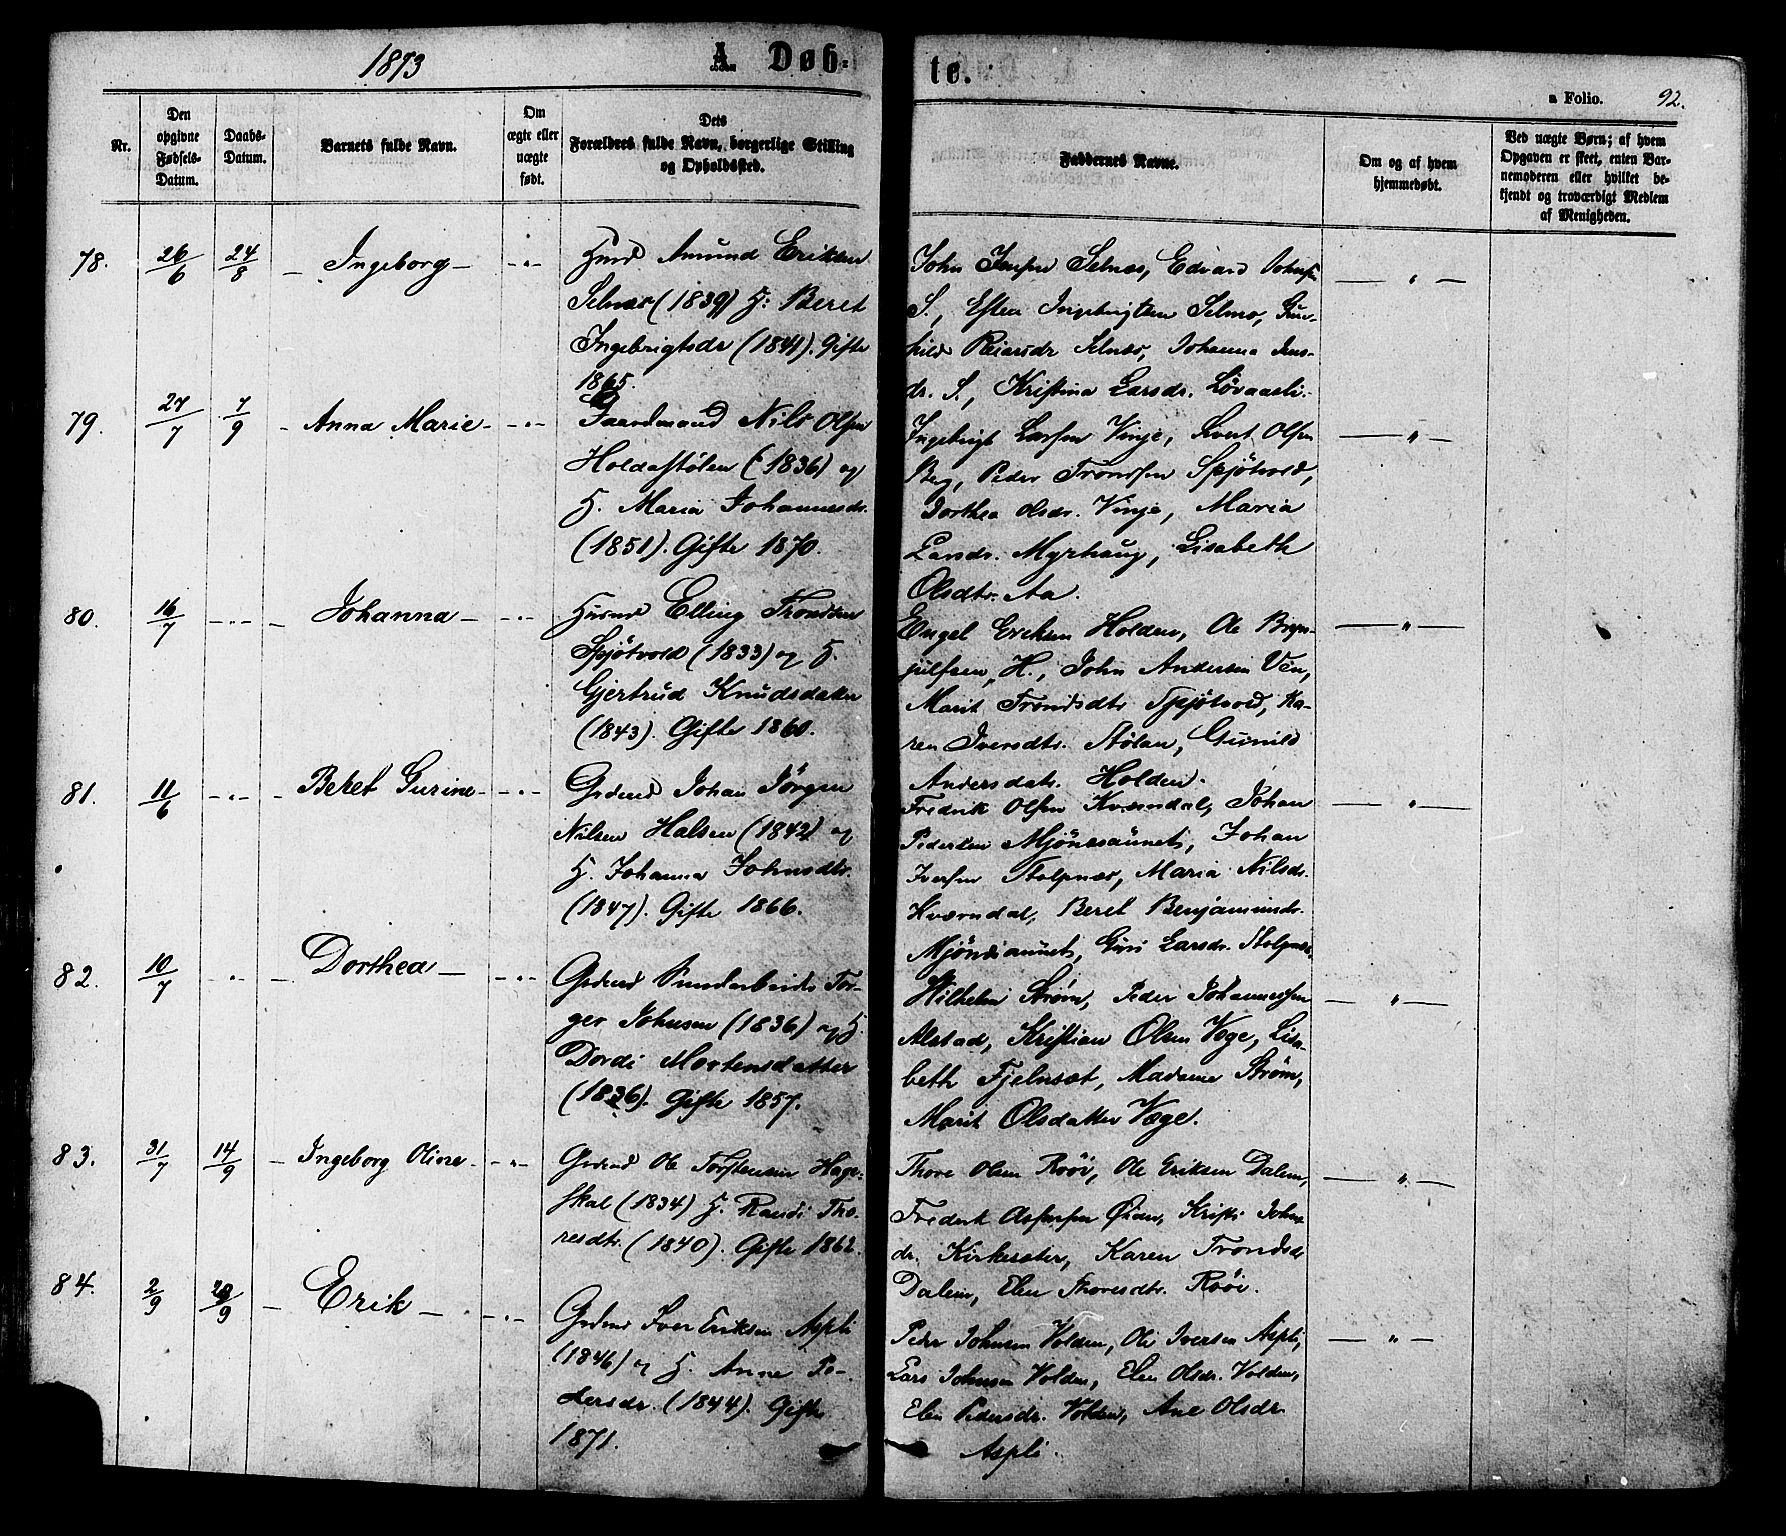 1873 A. Døb-
te.
a Folio. 92.
Nr.
Den opgivne Fødsels-Datum.
Daabs-Datum.
Barnets fulde Navn.
Om ægte eller uægte født.
Dets Forældres fulde Navn, borgerlige Stilling og Opholdssted.
Faddernes Navne.
Om og af hvem hjemmedøbt.
Ved uægte Børn; af hvem Opgaven er skeet, enten Bar-nemoderen eller hvilket be-kjendt og troværdigt Medlem af Menigheden.
78. 26/6 24/8 - Ingeborg - -"-
Husmd Amund Eriksen
Selnæs (1839) H: Beret
Ingebrigtsdr (1841). Gifte
1865.
John Jensen Selnæs, Edvard Johnsen
S., Esten Ingebrigtsen Selnæs, Gun-
hild Reiarsdr Selnæs, Johanna Jens-
dr. S., Kristina Larsdr. Løvaasli.
— " —
79. 27/7 7/9 - Anna Marie - -"-
Gaardmand Nils Olsen
Holdastølen (1836) og
H. Maria Johannesdr.
(1851). Gifte 1870.
Ingebrigt Larsen Vinje, Sivert Olsen
Beg, Peder Trondsen Spjøtvold,
Dorthea Olsdr. Vinje, Maria
Myrhaug, Lisabeth
Olsdtr. Aa.
— " —
80. 16/7 -"- - Johanna - -"-
Husmd Elling Trondsen
Spjøtvold (1833) og H.
Gjertrud Knudsdatter
(1843). Gifte 1860.
Engel Eriksen Holden, Ole Bryn-
julfsen H., John Andersen Ven,
Marit Trondsdtr Spjøtvold, Ka-
ren Iversdtr. Stølan, Gunild
Andersdatr. Holden.
— " —
81. 11/6 -"- - Beret Gurine - -"-
Grdmd Johan Jörgen
Nilsen Halsen (1842) og
H. Johanna Johnsdtr.
(1847). Gifte 1866.
Fredrik Olsen Kværndal, Johan
Pedersen Mjönessaunet, Johan
Iversen Stolpnæs, Maria Nilsdr.
Kværndal, Beret Benjaminsdr.
Guri Larsdr. Stolpnæs.
— " —
82. 10/7 " Dorthea - -"-
Grdmd Tor-
ger Johnsen (1836) og H.
Dordi Mortensdatter
(1836). Gifte 1857.
Vilhelm Strøm, Peder Johannessen
Alstad, Kristian Olsen Vege, Lisa-
beth Fjelnset, Madame Strøm,
Marit Olsdatter Vege.
— " —
83. 31/7 14/9 - Ingeborg Oline - -"-
Grdmd Ole Torstensen Hage-
skal (1834) H. Randi Tho-
resdtr. (1840). Gifte 1862.
Thore Olsen Røöi, Ole Eriksen Dalem,
Fredrik Aspersen Øien, Kristi Johns-
dr. Kirkesæter, Karen Trondsdr
Dalem, Elen Thoresdtr. Røöi.
— " —
84. 2/9 28/9 - Erik - -"-
Grdmd Iver Eriksen Aspli
(1846) og H. Anne Pe-
dersdr. (1844). Gifte
1871.
Peder Johnsen Volden, Ole Iversen Aspli,
Lars Johnsen Volden, Elen Olsdr. Volden,
Elen Pedersdr. Volden, Ane Olsdr.
Aspli.
— " —